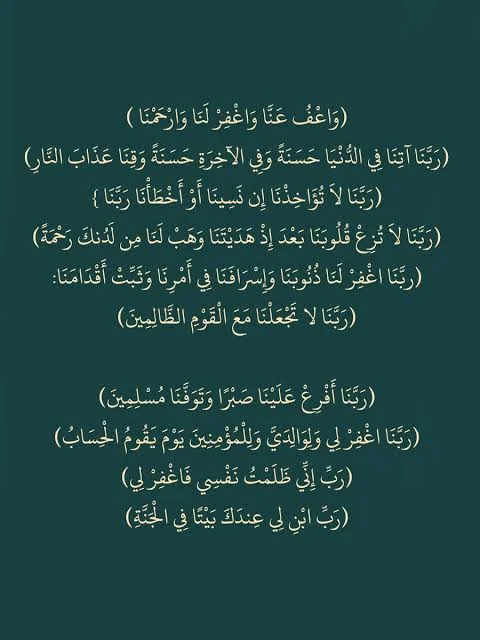 (وَاعْفُ عَنَّا وَاغْفِرْ لَنَا وَارْحَمْنَا )
(رَبَّنَا آتِنَا فِي الدُّنْيَا حَسَنَةً وَفِي الآخِرَةِ حَسَنَةً وَقِنَا عَذَابَ النَّارِ)
(رَبَّنَا لاَ تُؤَاخِذْنَا إِن نَسِينَا أَوْ أَخْطَأْنَا رَبَّنَا }
(رَبَّنَا لاَ تُزِغْ قُلُوبَنَا بَعْدَ إِذْ هَدَيْتَنَا وَهَبْ لَنَا مِن لَدُنكَ رَحْمَةً)
(ربَّنَا اغْفِرْ لَنَا ذُنُوبَنَا وَإِسْرَافَنَا فِي أَمْرِنَا وَثَبِّتْ أَقْدَامَنَا:
(رَبَّنَا لا تَجْعَلْنَا مَعَ الْقَوْمِ الظَّالِمِينَ)
(رَبَّنَا أَفْرِغْ عَلَيْنَا صَبْرًا وَتَوَفَّنَا مُسْلِمِينَ)
(رَبَّنَا اغْفِرْ لِي وَلِوَالِدَيَّ وَلِلْمُؤْمِنِينَ يَوْمَ يَقُومُ الْحِسَابُ)
(رَبِّ إِنِّي ظَلَمْتُ نَفْسِي فَاغْفِرْ لِي)
(رَبِّ ابْنِ لِي عِندَكَ بَيْتًا فِي الْجَنَّةِ)